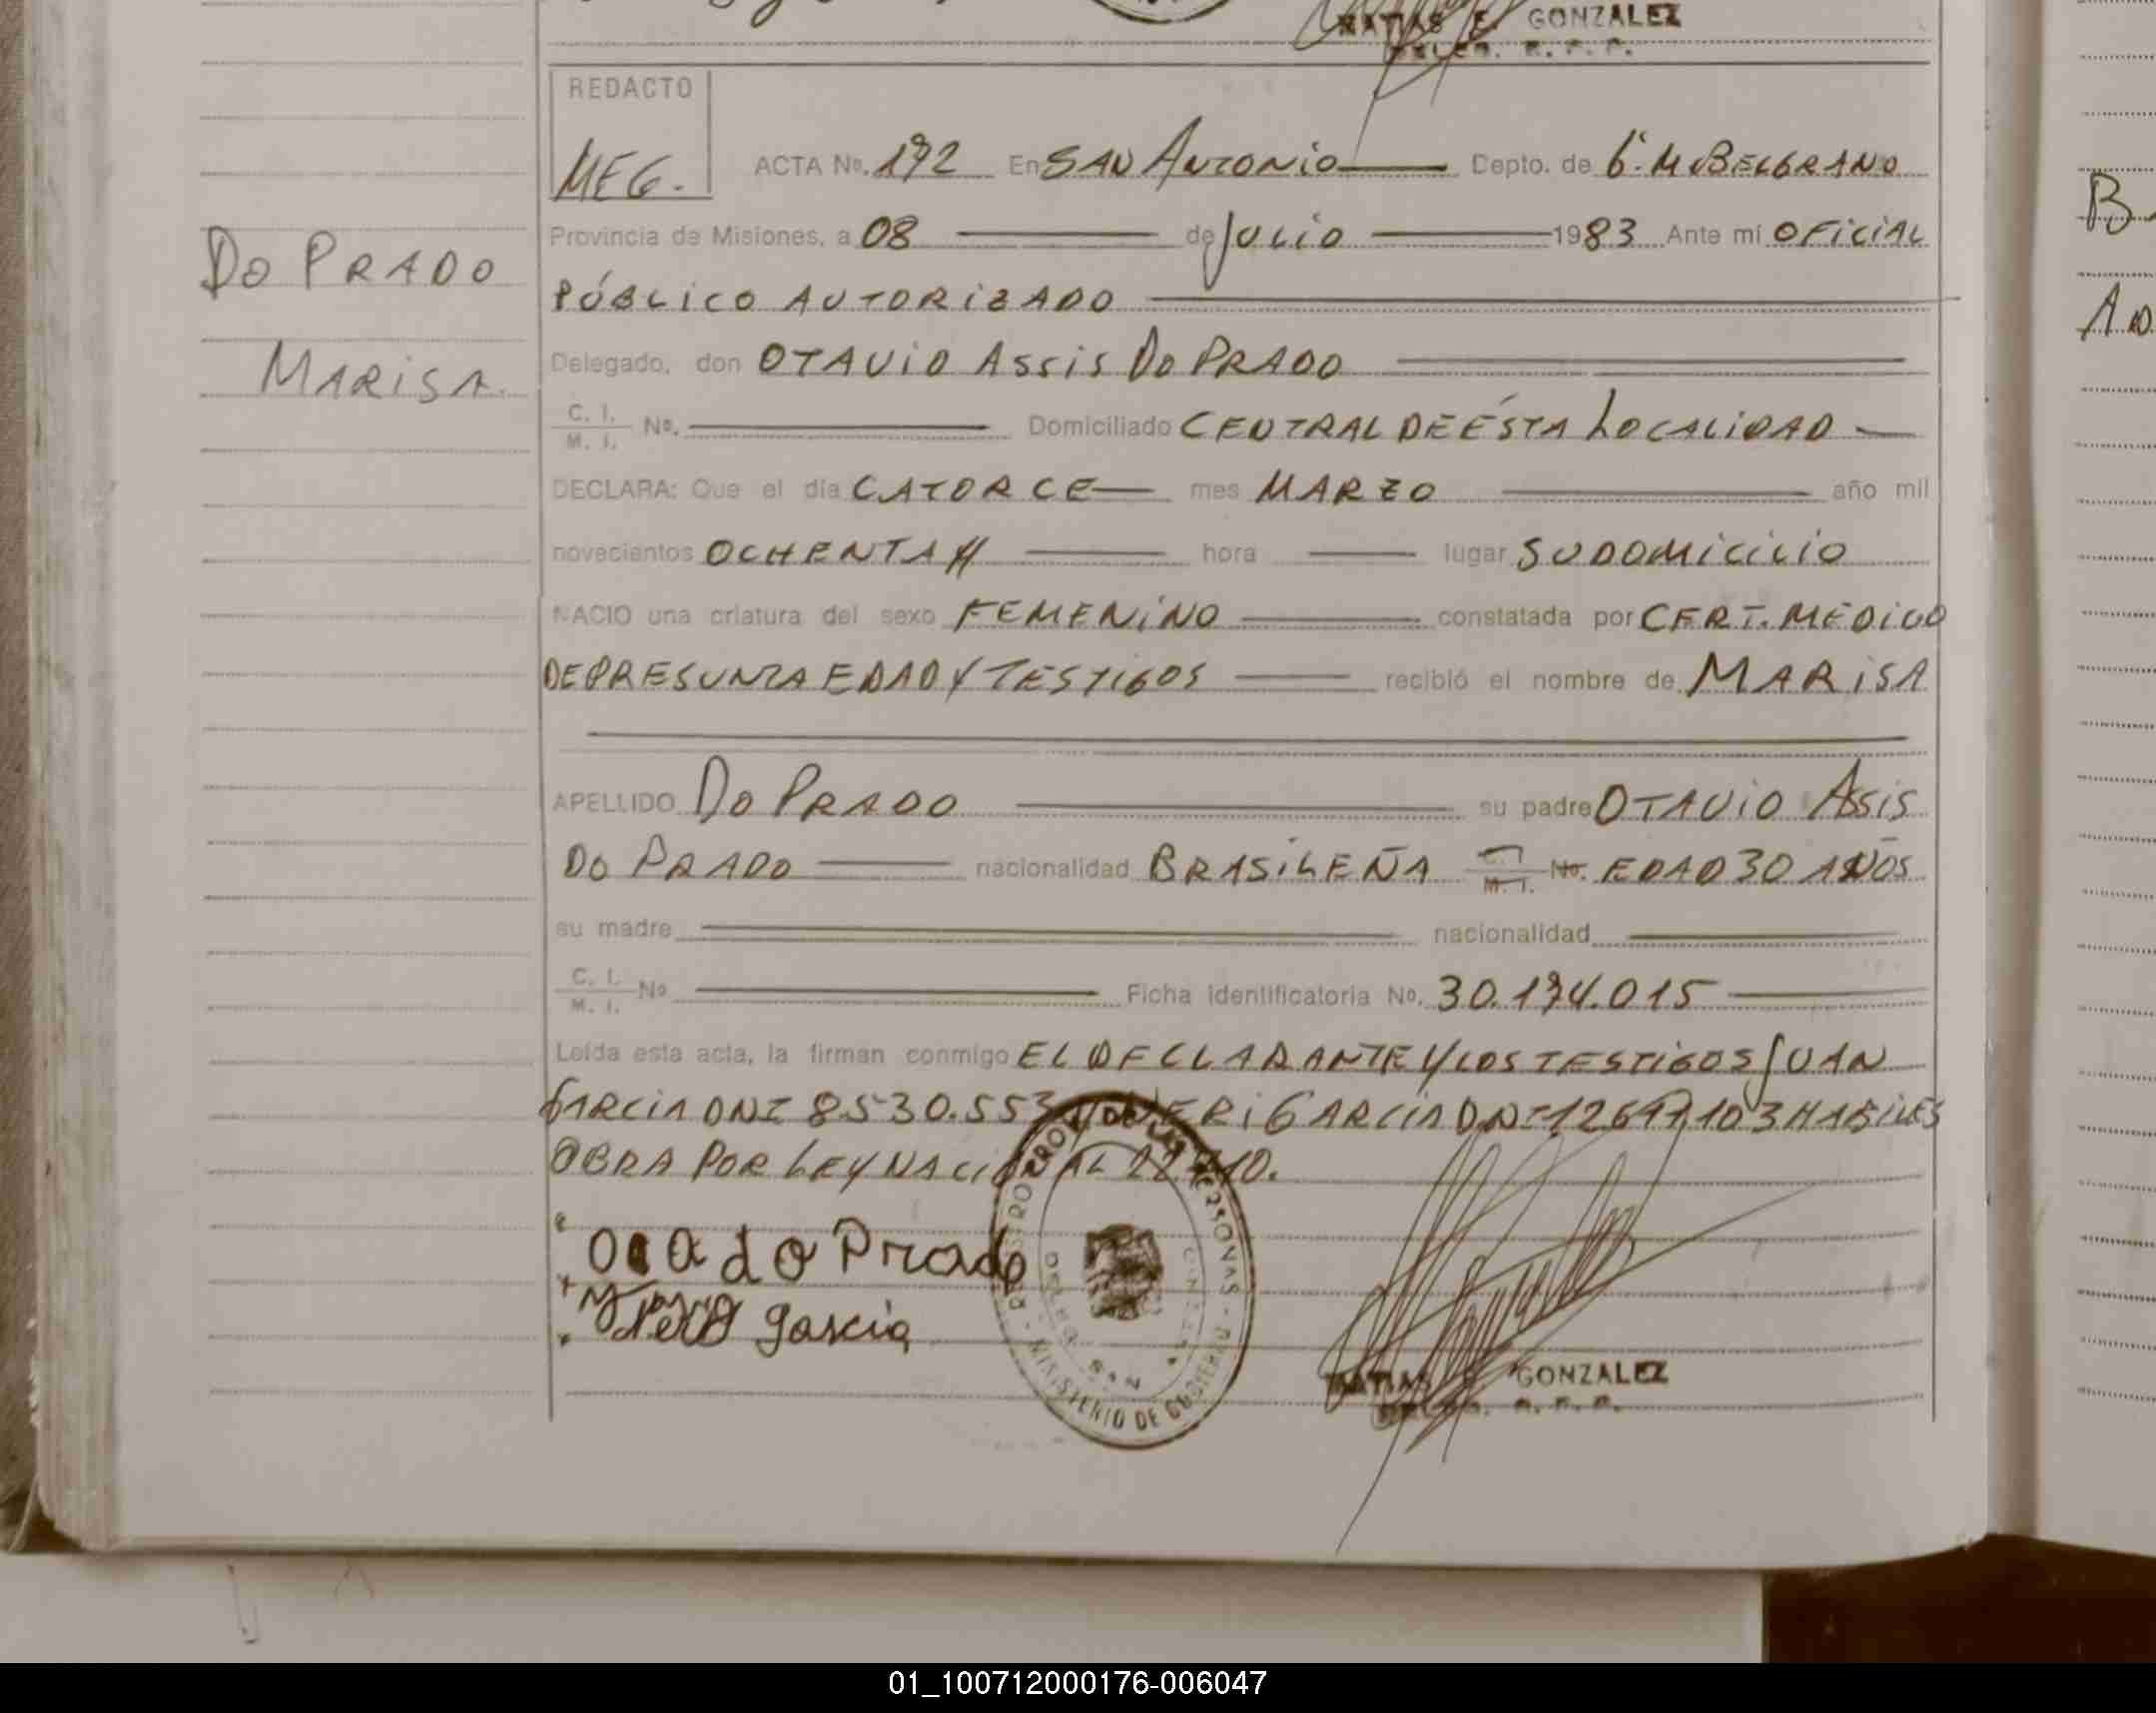 GONZALEZ
REDACTO
MEG.
ACTA No. 172 En SAN ANTONIO Depto. de G. M. BELGRANO
Provincia de Misiones, a 08 de JULIO 1983 Ante mi OFICIAL
PÚBLICO AUTORIZADO
DO PRADO
MARISA.
Delegado, don OTAVIO ASSIS DO PRADO
C. I. M. I. No. Domiciliado CENTRAL DE ÉSTA LOCALIDAD
DECLARA: Que el día CATORCE mes MARZO año mil
novecientos OCHENTA hora lugar SU DOMICILIO
NACIO una criatura del sexo FEMENINO constatada por CERT. MÉDICO
DE PRESUNTA EDAD Y TESTIGOS recibió el nombre de MARISA
APELLIDO DO PRADO su padre OTAVIO ASSIS
DO PRADO nacionalidad BRASILEÑA C. I. M. I. No. EDAD 30 AÑOS
su madre nacionalidad
C. I. M. I. No Ficha identificatoria No. 30.174.015
Leída esta acta, la firman conmigo EL DECLARANTE Y LOS TESTIGOS JUAN
GARCIA DNI 8530.553 Y NERI GARCÍA DNI HABILES
OBRA POR LEY NACIONAL
do Prado
garcia
MINISTERIO DE GOBIERNO
MATIAS GONZALEZ
01_100712000176-006047